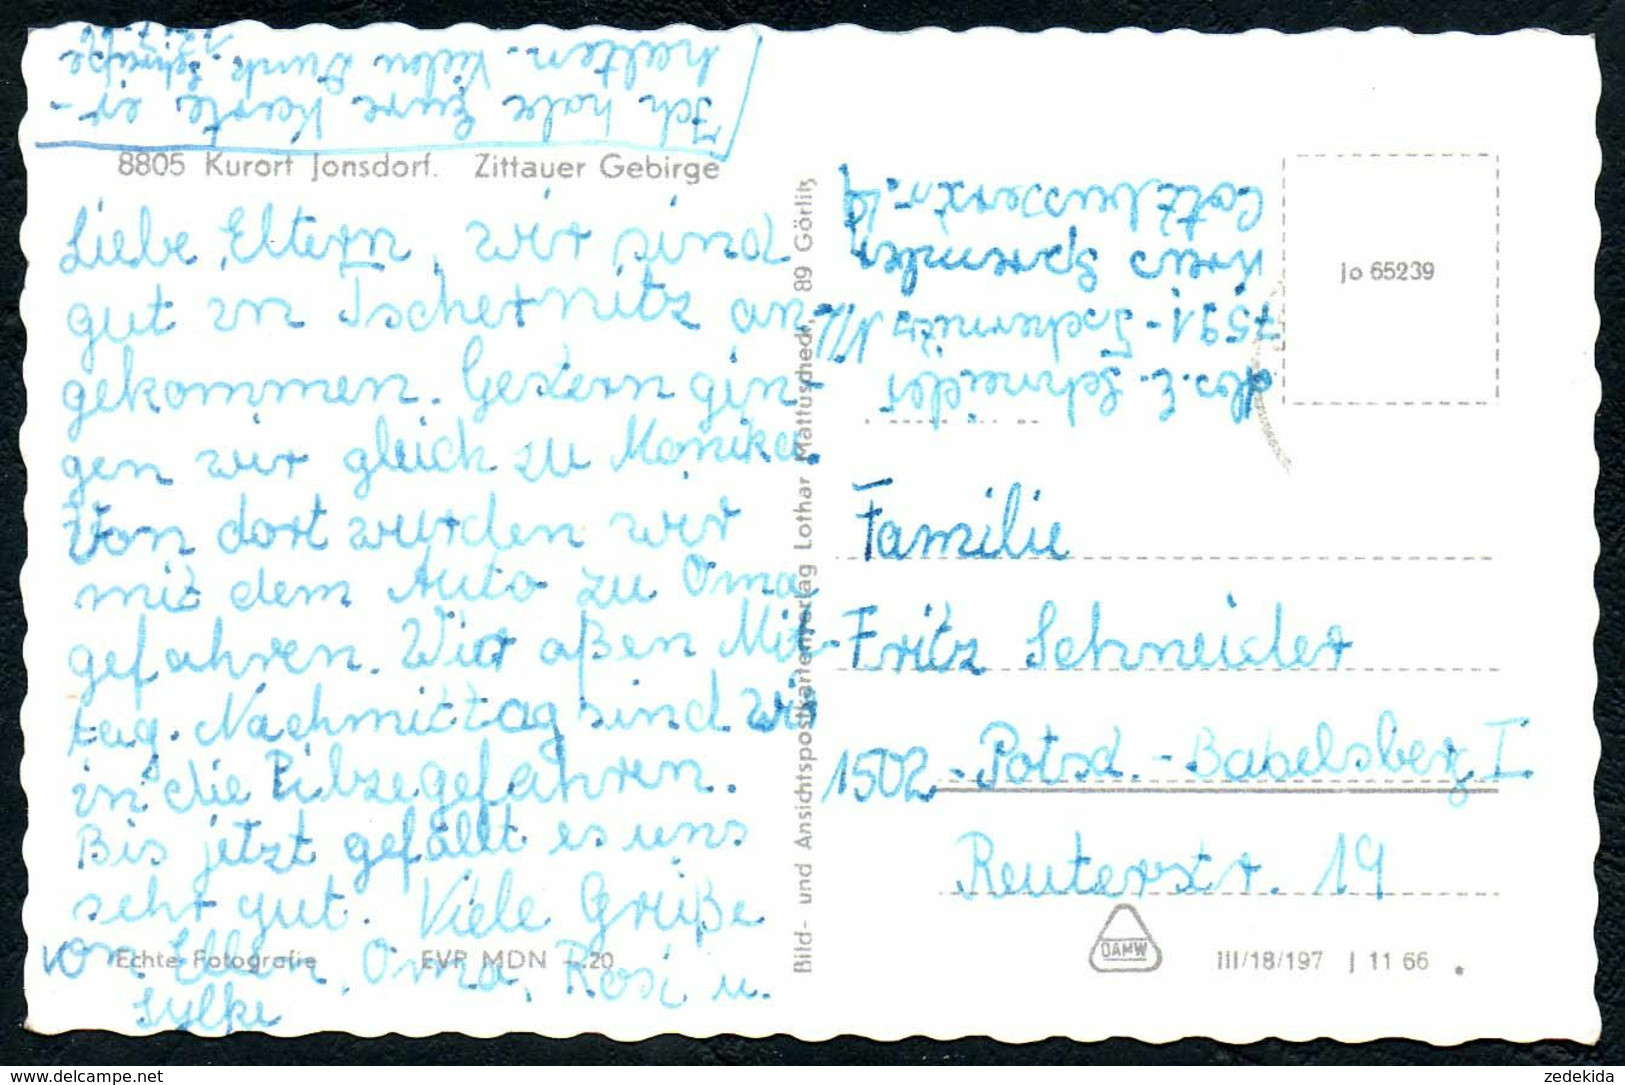 Ich habe Eure Karte er-
halten. Vielen Dank.
8805 Kurort Jonsdorf. Zittauer Gebirge
Liebe Eltern, wir sind
gut in Tschernitz an
gekommen. Gestern gin-
gen wir gleich zu Monika.
Von dort wurden wir
mit dem Auto zu Oma
gefahren. Wir aßen Mit-
tag. Nachmittag sind wir
in die Pilze gefahren.
Bis jetzt gefällt es uns
sehr gut. Viele Grüße
von Ellen, Oma, Rosi u.
Sylke
Echte Fotografie EVP MDN -.20
Bild- und Ansichtspostkartenverlag Lothar Mattuscheck, 89 Görlitz
Abs. E. Schneider
7591 - Tschernitz N/L
Kreis Spremberg
Cottbuserstr. 29
Jo 65239
Familie
Fritz Schneider
1502 - Potsd. - Babelsberg I.
Reuterstr. 19
DAMW
III/18/197 J 11 66
zedekida